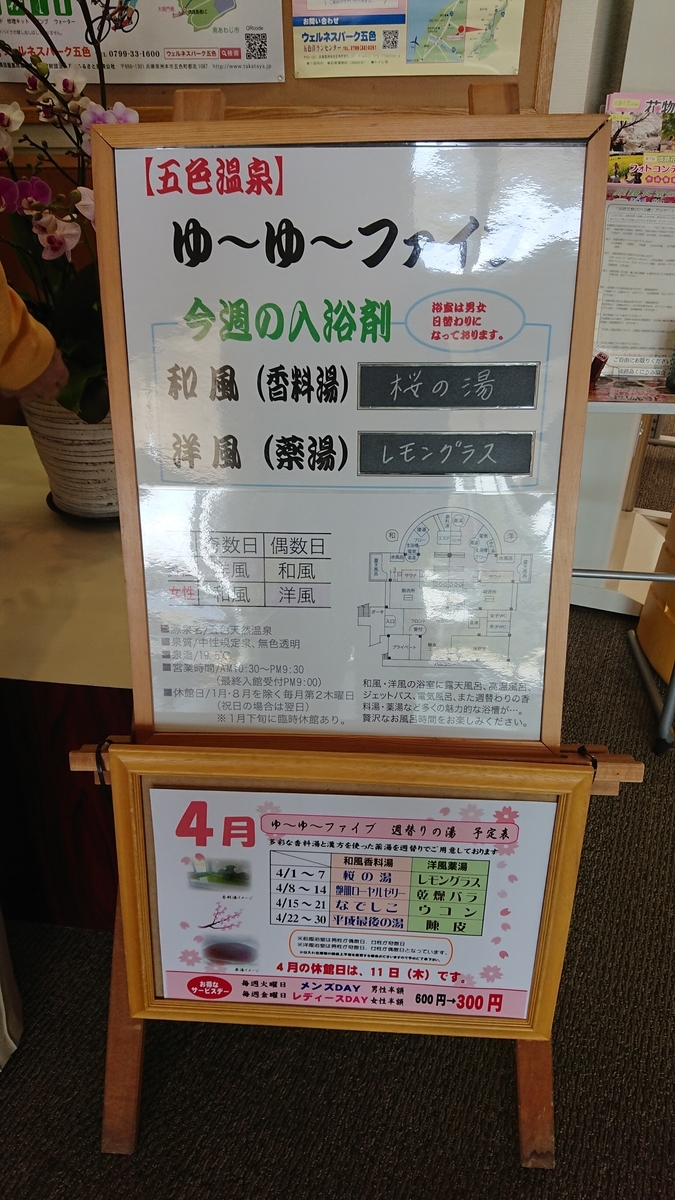 QRcode
0799-33-1600
ウェルネスパーク五色
検索
http://www.takataya.jp
お問い合わせ
ウェルネスパーク五色
花物
フォトコンテ
【五色温泉】
ゆ〜ゆ〜ファイブ
今週の入浴剤
浴室は男女
日替わりに
なっております。
和風（香料湯） 桜の湯
洋風（薬湯） レモングラス
奇数日 偶数日
洋風 和風
女性 和風 洋風
■泉質/中性規定泉、無色透明
■営業時間/AM10:30〜PM9:30
（最終入館受付PM9:00）
■休館日/1月・8月を除く毎月第2木曜日
（祝日の場合は翌日）
※1月下旬に臨時休館あり。
和 洋
サウナ サウナ
入口 フロント
プライベート
和風・洋風の浴室に露天風呂、高温風呂、
ジェットバス、電気風呂、また週替わりの香
料湯・薬湯など多くの魅力的な浴槽が…。
贅沢なお風呂時間をお楽しみください。
4月 ゆ〜ゆ〜ファイブ 週替りの湯 予定表
多彩な香料湯と漢方を使った薬湯を週替りでご用意しております
和風香料湯 洋風薬湯
4/1〜7 桜の湯 レモングラス
4/8〜14 艶肌ローヤルゼリー 乾燥バラ
4/15〜21 なでしこ ウコン
4/22〜30 平成最後の湯 陳皮
香料湯イメージ
薬湯イメージ
※和風浴室は男性が偶数日、女性が奇数日
※洋風浴室は男性が奇数日、女性が偶数日となっています。
4月の休館日は、11日（木）です。
お得な
サービスデー
毎週火曜日 メンズDAY 男性半額
毎週金曜日 レディースDAY 女性半額
600円→300円